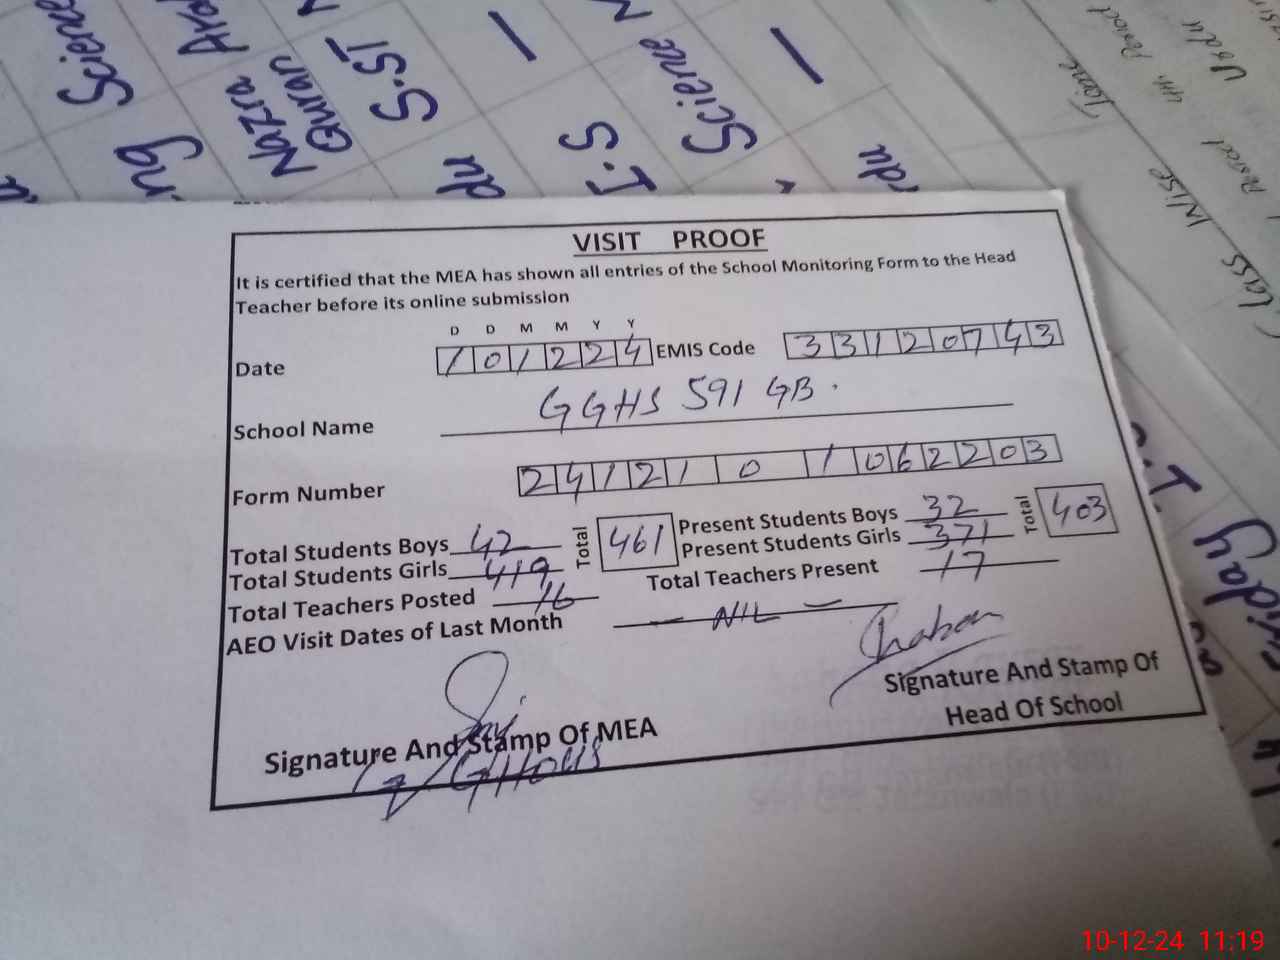 Science
Nazra
Quran
S.ST
Science
I.S
Time
Urdu
Period
Class Wise
VISIT PROOF
It is certified that the MEA has shown all entries of the School Monitoring Form to the Head
Teacher before its online submission
D D M M Y Y
Date 101224 EMIS Code 33120743
School Name GGHS 591 GB.
Form Number 24121 0 1062203
Total Students Boys 42 Total 461 Present Students Boys 32 Total 403
Total Students Girls 419 Present Students Girls 371
Total Teachers Posted 16 Total Teachers Present 17
AEO Visit Dates of Last Month — NIL —
Signature And Stamp Of MEA
Signature And Stamp Of
Head Of School
10-12-24 11:19